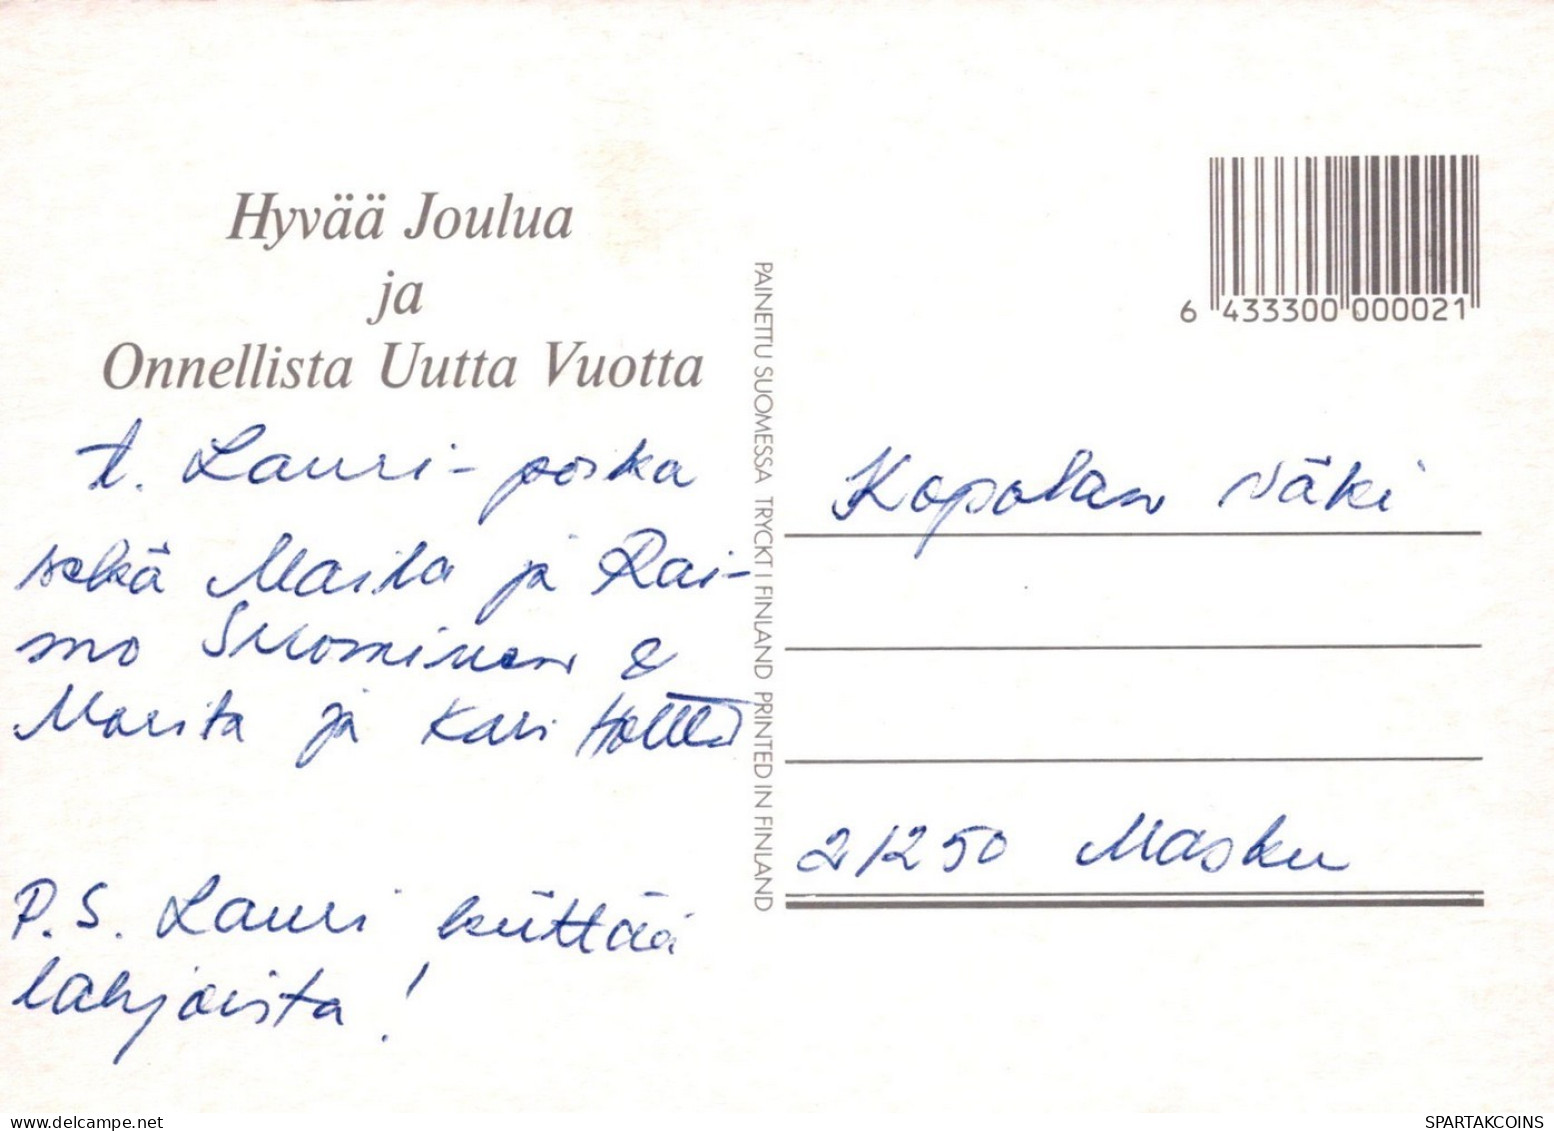 Hyvää Joulua
ja
Onnellista Uutta Vuotta
t. Lauri-poika
sekä Maila ja Rai-
mo Suominen &
Marita ja Kari
P.S. Lauri kiittää
lahjoista!
PAINETTU SUOMESSA TRYCKT I FINLAND PRINTED IN FINLAND
6 433300 000021
Kopolan väki
21250 Masku
delcampe.net
SPARTAKCOINS